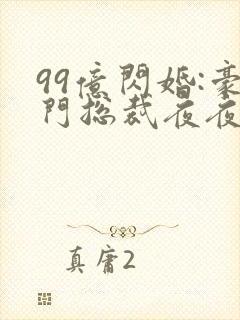 99億閃婚:豪
門総裁夜夜
真庸2